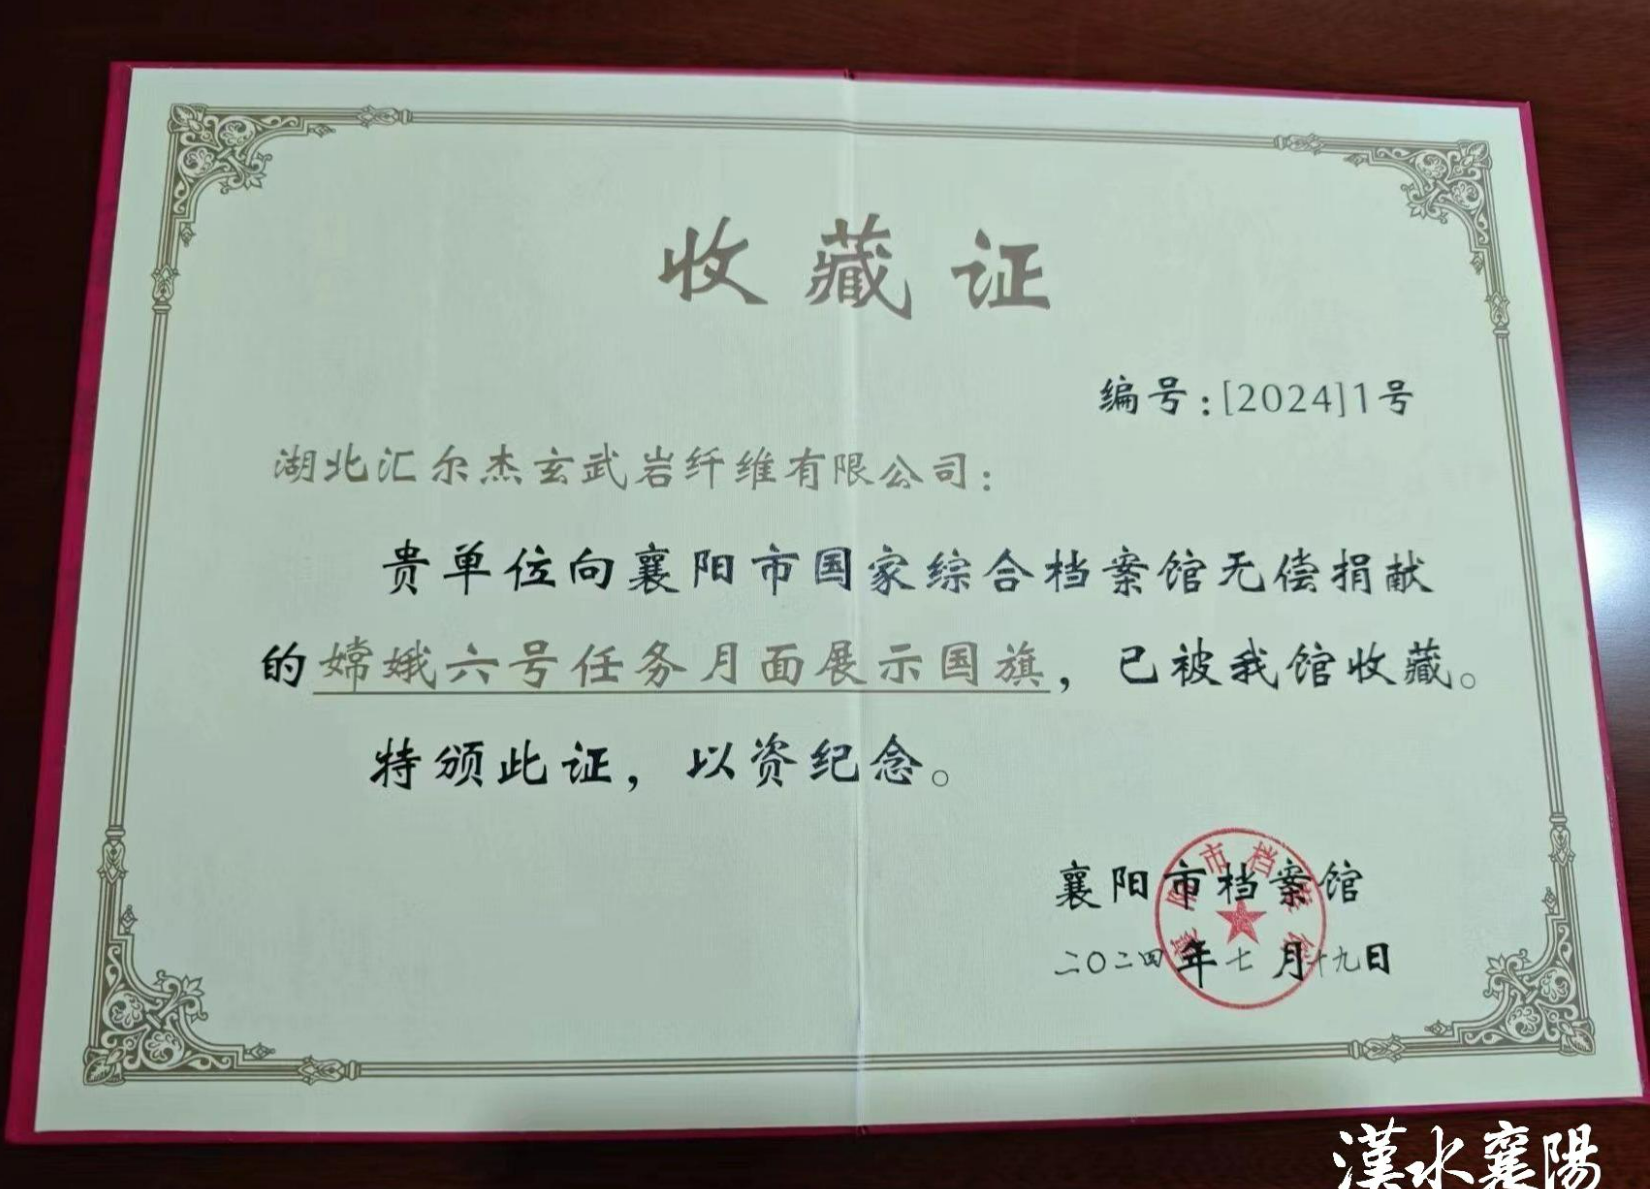 收藏证
编号：[2024]1号
湖北汇尔杰玄武岩纤维有限公司：
贵单位向襄阳市国家综合档案馆无偿捐献
的嫦娥六号任务月面展示国旗，已被我馆收藏。
特颁此证，以资纪念。
襄阳市档案馆
二〇二四年七月十九日
襄阳市档案馆
漢水襄陽